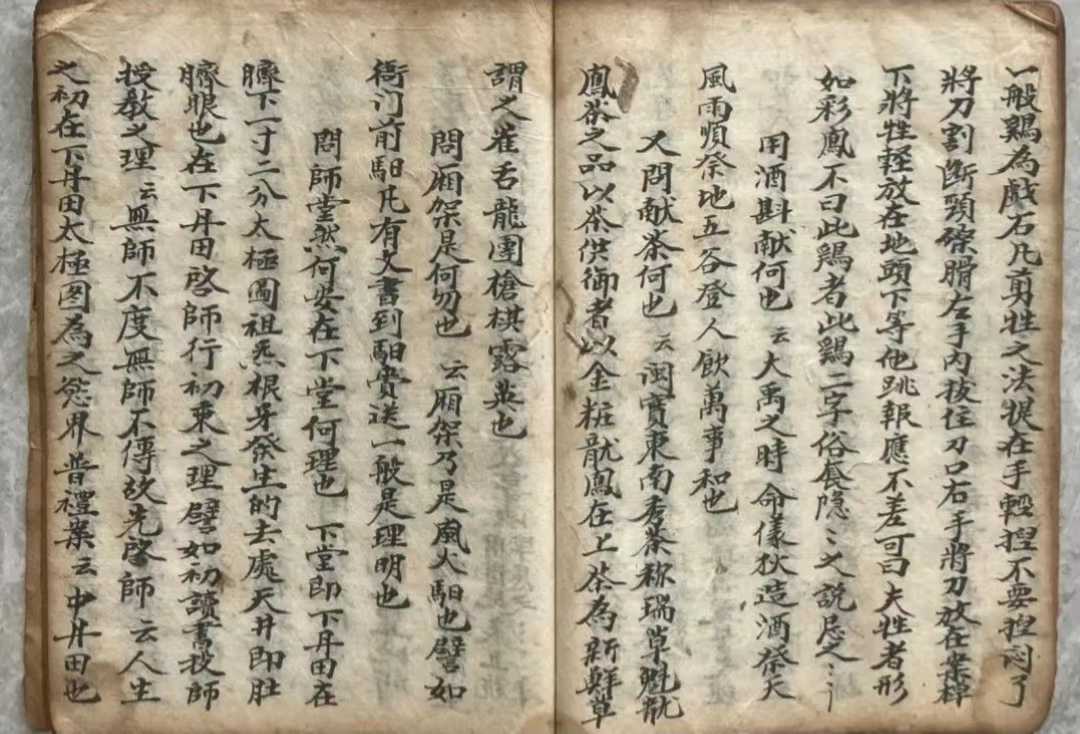 一般鷄為戲石凡剪牲之法提在手輕揑不要揑悶了
將刀割斷頸嗓滑左手內拔住刀口右手將刀放在案棹
下將牲輕放在地頭下等他跳報應不差可曰夫牲者形
如彩鳳不曰此鷄者此鷄二字俗食隐〻之説忌之〻〻
用酒斟献何也 云大禹之時命儀狄造酒祭天
風雨順祭地五谷登人飲萬事和也
又問献茶何也 云閩寶東南秀茶称瑞草魁龍
鳳茶之品以茶供御者以金粧龍鳳在上茶為新鮮草
謂之雀舌龍團槍棋露英也
問厢架是何勿也 云厢架乃是風火馹也譬如
衙门前馹凡有文書到馹賫送一般是理明也
問師堂然何安在下堂何理也 下堂即下丹田在
臍下一寸二分太極圖祖炁根牙發生的去處天井即肚
臍眼也在下丹田啓師行初束之理譬如初讀書投師
授教之理 云無師不度無師不傳故先啓師 云人生
之初在下丹田太極图為之慾界 普禮案云中丹田也